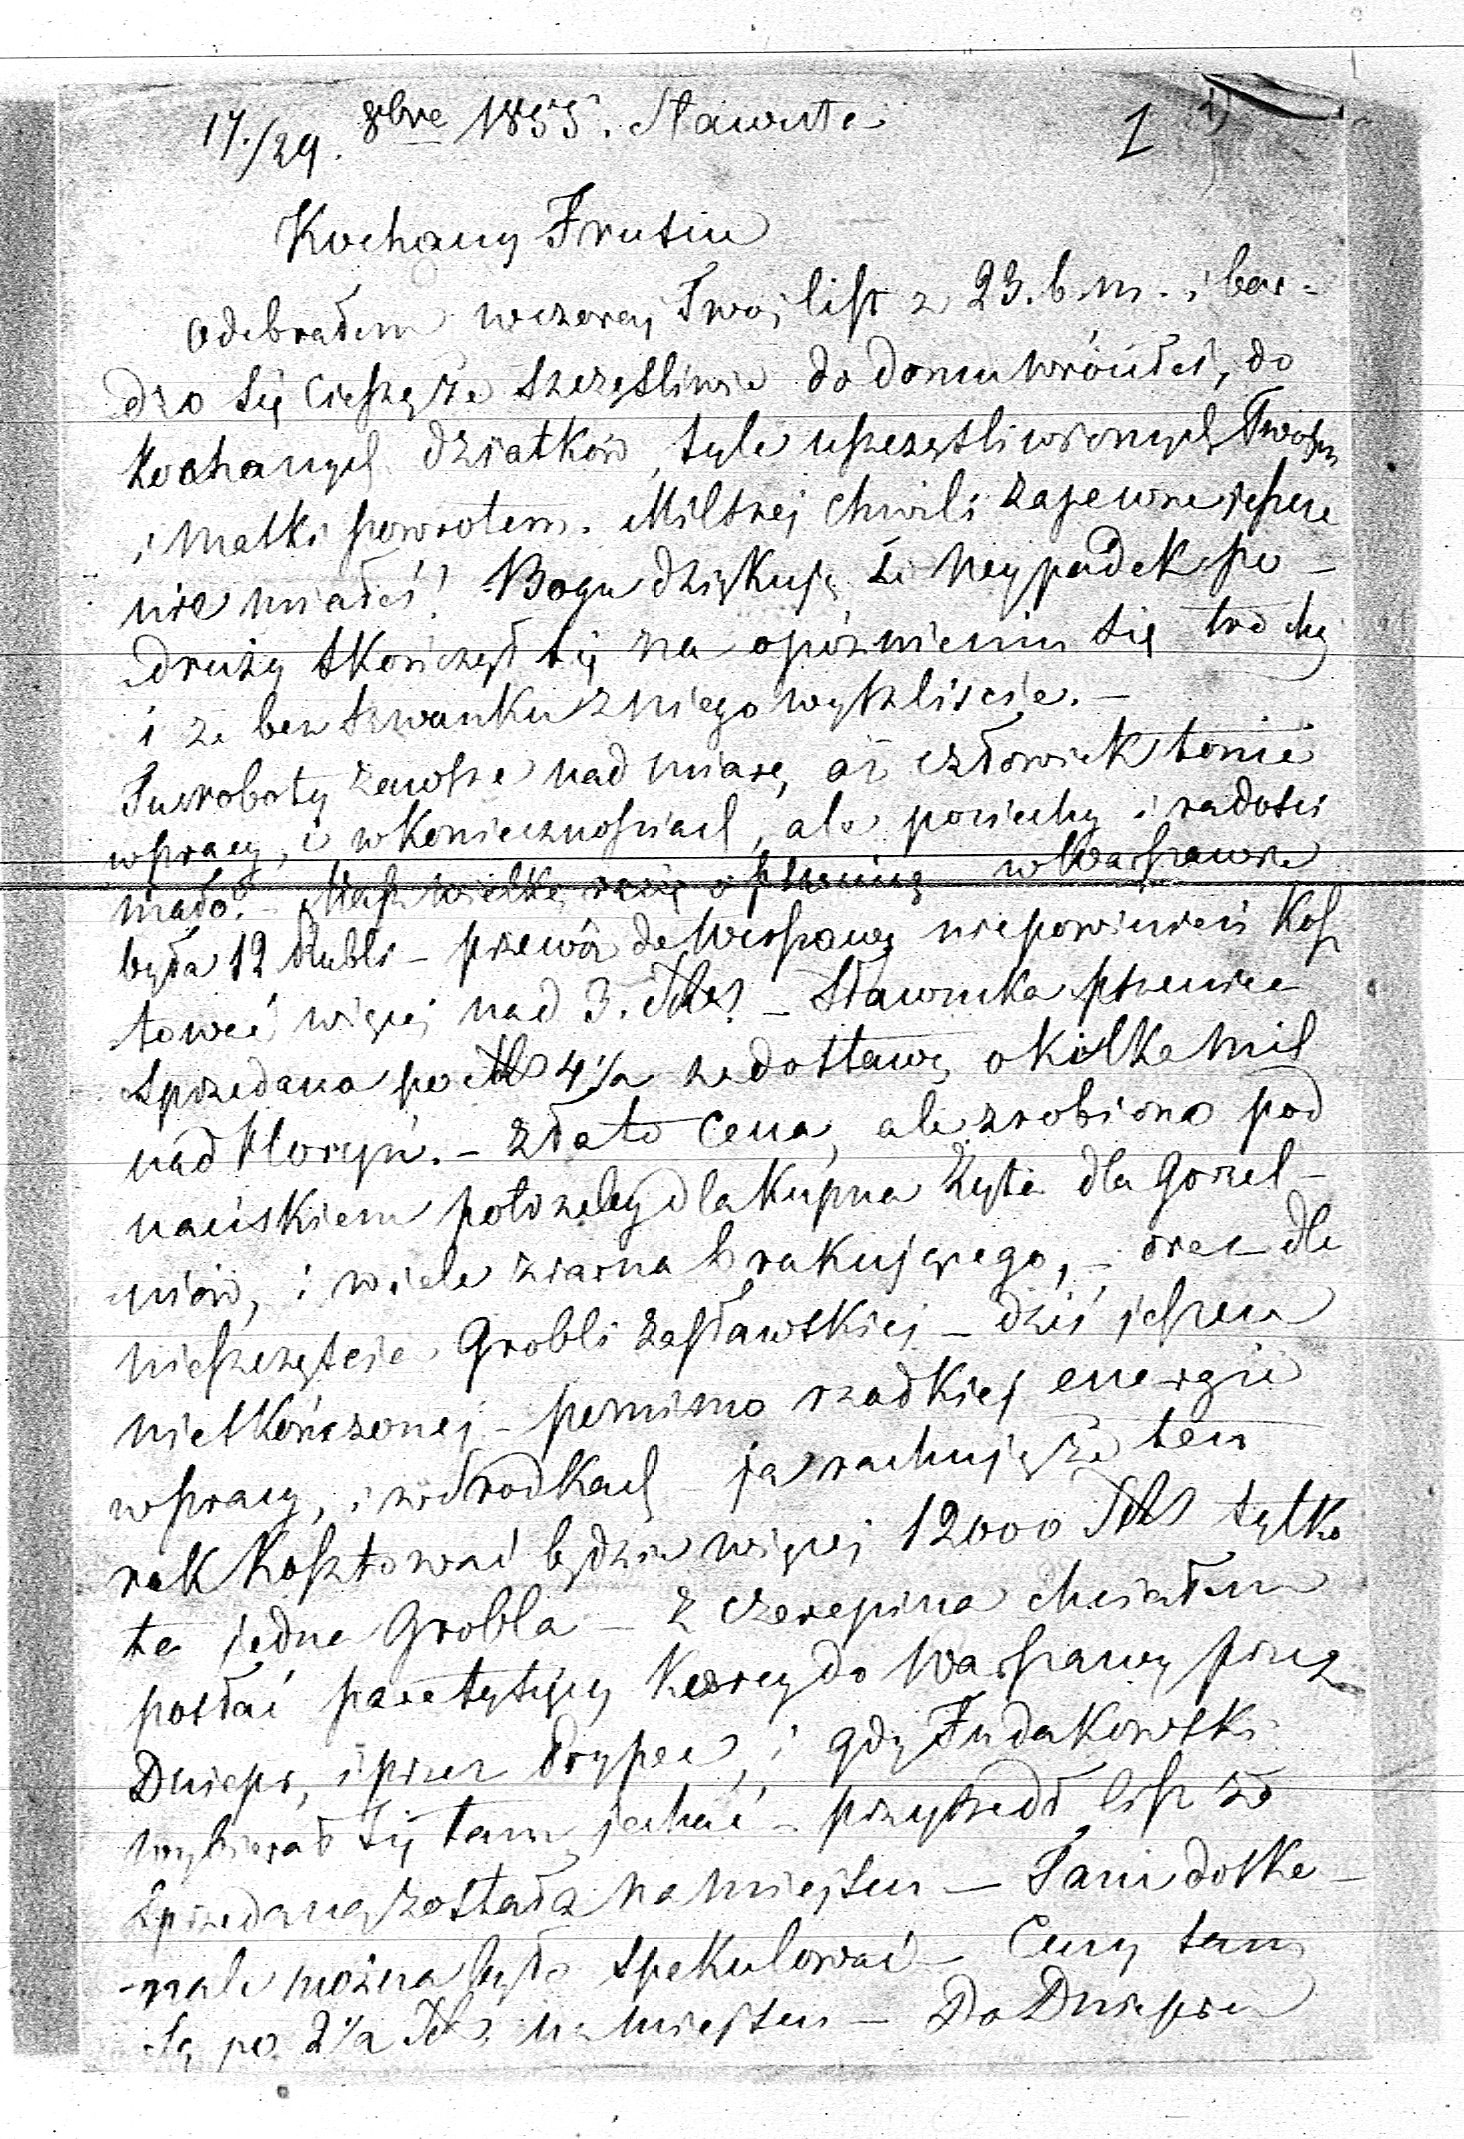 17./29. 8bre 1855. Sławuta
1
Kochany Frutiu
Odebrałem wczoraj Twój list z 23. b. m. i bar-
dzo się cieszę że szczęśliwie do domu wróciłeś, do
kochanych dziatków, tyle uszczęśliwionych Twoim
i matki powrotem. Milszej chwili zapewne jeszcze
nie miałeś! Bogu dziękuję że wypadek po-
dróży skończył się na opóźnieniu się trochę
i że bez szwanku z niego wyszliście. -
Tu roboty zawsze nad miarę, aż człowiek tonie
w pracy, i w koniecznościach, ale pociechy i radości
mało. - Masz wielką racją o pszenicę w Warszawie
była 12 Rubli - przewóz do Warszawy niepowinien kosz
tować więcej nad 3. Rbs. - Sławucka pszenica
sprzedana po Rb 4 1/2 za dostawę o kilka mil
nad Horyń. - Zła to cena, ale zrobiona pod
naciskiem potrzeby dla kupna żyta dla gorzel-
niów, i wiele ziarna brakującego, - oraz dla
nieszczęście Grobli Zasławskiej - dziś jeszcze
nieskończonej - pomimo rzadkiej energie
w pracy, i w środkach ja rachuję że ten
rok kosztować będzie więcej 12000 Rbs tylko
ta jedna Grobla - Z Czerepina chciałem
posłać parę tysięcy korcy do Warszawy przez
Dniepr, i przez Prypeć, i gdy Fudakowski
wybierał się tam jechać - przyszedł list że
sprzedaną została na miejscu - Tam dosko-
nale można było spekulować - Ceny tam
są po 2 1/2 Rb. na miejscu - Do Dniepru